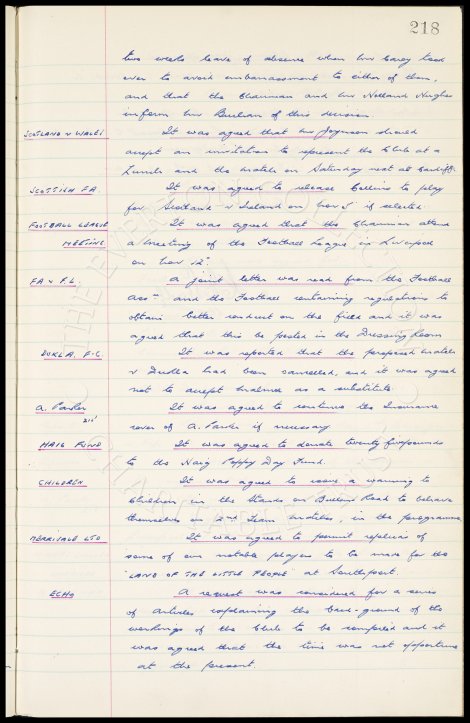 218
two weeks leave of absence when Mr Carey took
over to avoid embarrassment to either of them,
and that the Chairman and Mr Holland Hughes
inform Mr Buchan of this decision.
SCOTLAND v WALES It was agreed that Mr Joynson should
accept an invitation to represent the Club at a
Lunch and the match on Saturday next at Cardiff.
SCOTTISH F.A. It was agreed to release Collins to play
for Scotland v Ireland on Nov 5 if selected.
FOOTBALL LEAGUE It was agreed that the Chairman attend
MEETING a meeting of the Football League in Liverpool
on Nov
FA & F.L. A joint letter was read from the Football
Assn and the Football containing regulations to
obtain better conduct on the field and it was
agreed that this be posted in the Dressing Room
DUKLA. F.C. It was reported that the proposed match
v Dukla had been cancelled, and it was agreed
not to accept as a substitute.
A. Parker It was agreed to continue the Insurance
210 cover of A. Parker if necessary
HAIG FUND It was agreed to donate twenty five pounds
to the Haig Poppy Day Fund.
CHILDREN It was agreed to issue a warning to
Children, in the Stands on Bullens Road to behave
themselves on 2nd Team matches, in the programme
MERRIVALE LTD It was agreed to permit replicas of
some of our notable players to be made for the
"LAND OF THE LITTLE PEOPLE" at Southport.
ECHO A request was considered for a series
of Articles explaining the back-ground of the
workings of the Club to be compiled and it
was agreed that the time was not opportune
at the present.